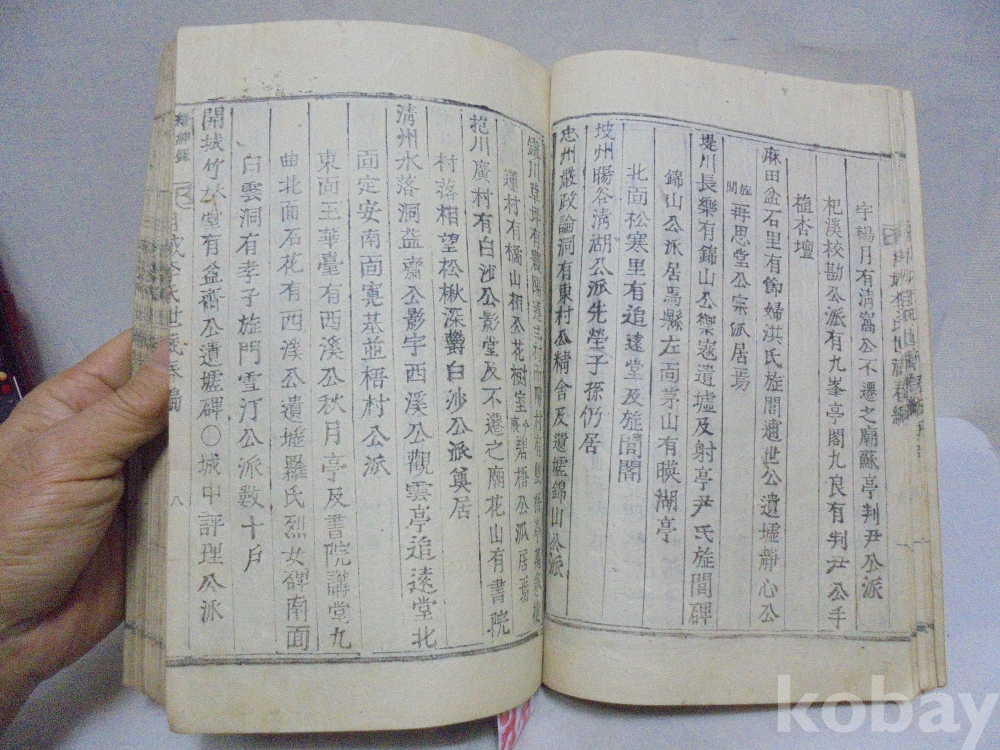 宇鞨月有淸窩公不遷之廟蘇亭判尹公派
杞溪校勘公派有九峯亭閣九良有判尹公手
植杏壇
麻田盆石里有節婦洪氏旌閭遺世公遺墟靜心公
旌閭
再思堂公宗派居焉
堤川長樂有錦山公禦寇遺墟及射亭尹氏旌閭碑
錦山公派居焉縣左面茅山有暎湖亭
北面松寒里有追遠堂及旌閭閣
坡州暘谷淸湖公派先塋子孫仍居
忠州嚴政論洞有東村公精舍及遺墟錦山公派
蓮村有橘山相公花樹室 碧梧公派居焉
抱川廣村有白沙公影堂及不遷之廟花山有書院
村落相望松楸深欝白沙公派奠居
淸州水落洞益齋公影宇西溪公觀雲亭追遠堂北
面定安南面寬基並梧村公派
東面玉華臺有西溪公秋月亭及書院講堂九
曲北面石花有西溪公遺墟羅氏烈女碑南面
白雲洞有孝子旌門雪汀公派數十戶
開城竹林堂有益齋公遺墟碑○城中評理公派
八
kobay